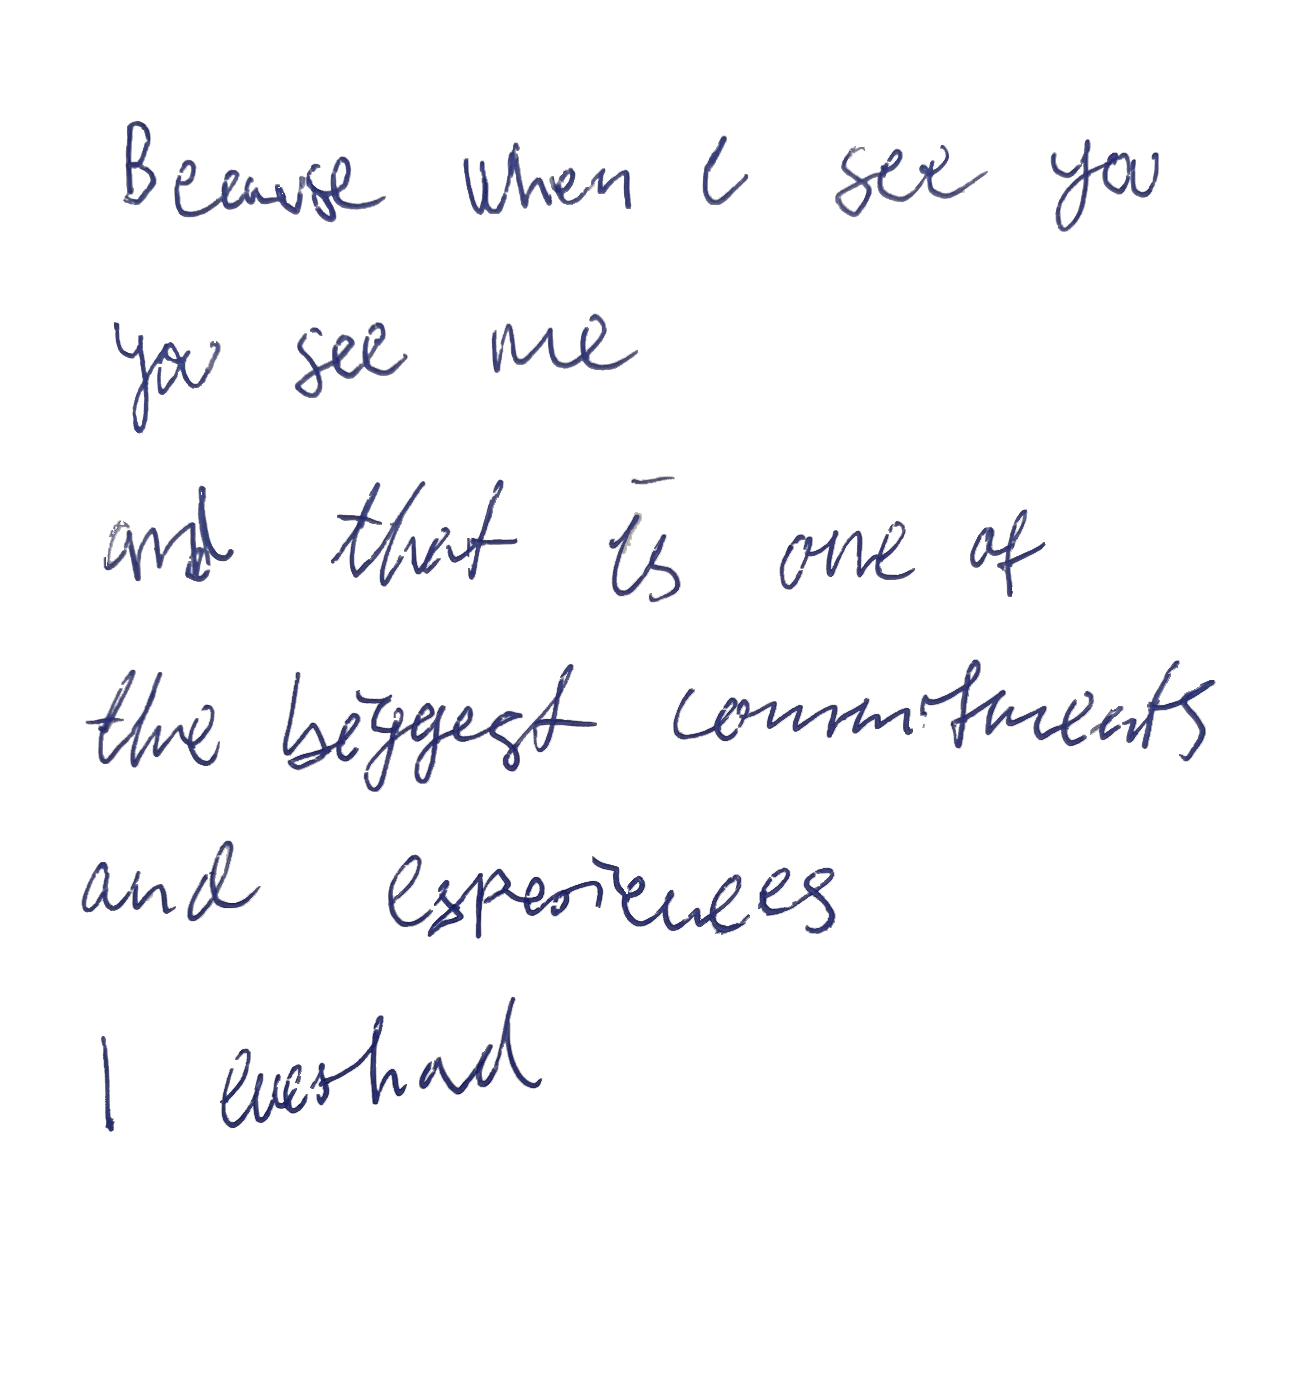 Because when I see you
you see me
and that is one of
the biggest commitments
and experiences
I ever had